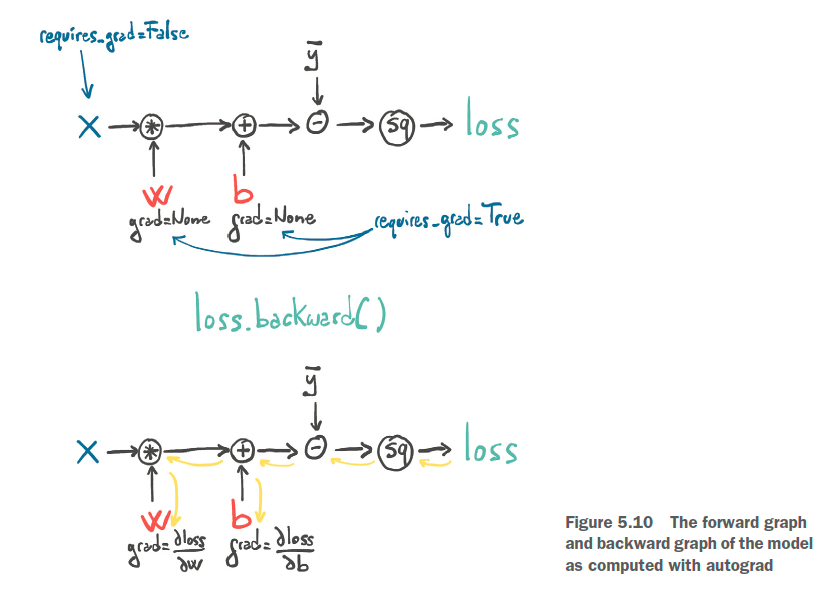 requires_grad=False
ȳ
X * + − sq loss
w b
grad=None grad=None requires_grad=True
loss.backward()
ȳ
X * + − sq loss
w b
grad=∂loss/∂w grad=∂loss/∂b
Figure 5.10 The forward graph
and backward graph of the model
as computed with autograd